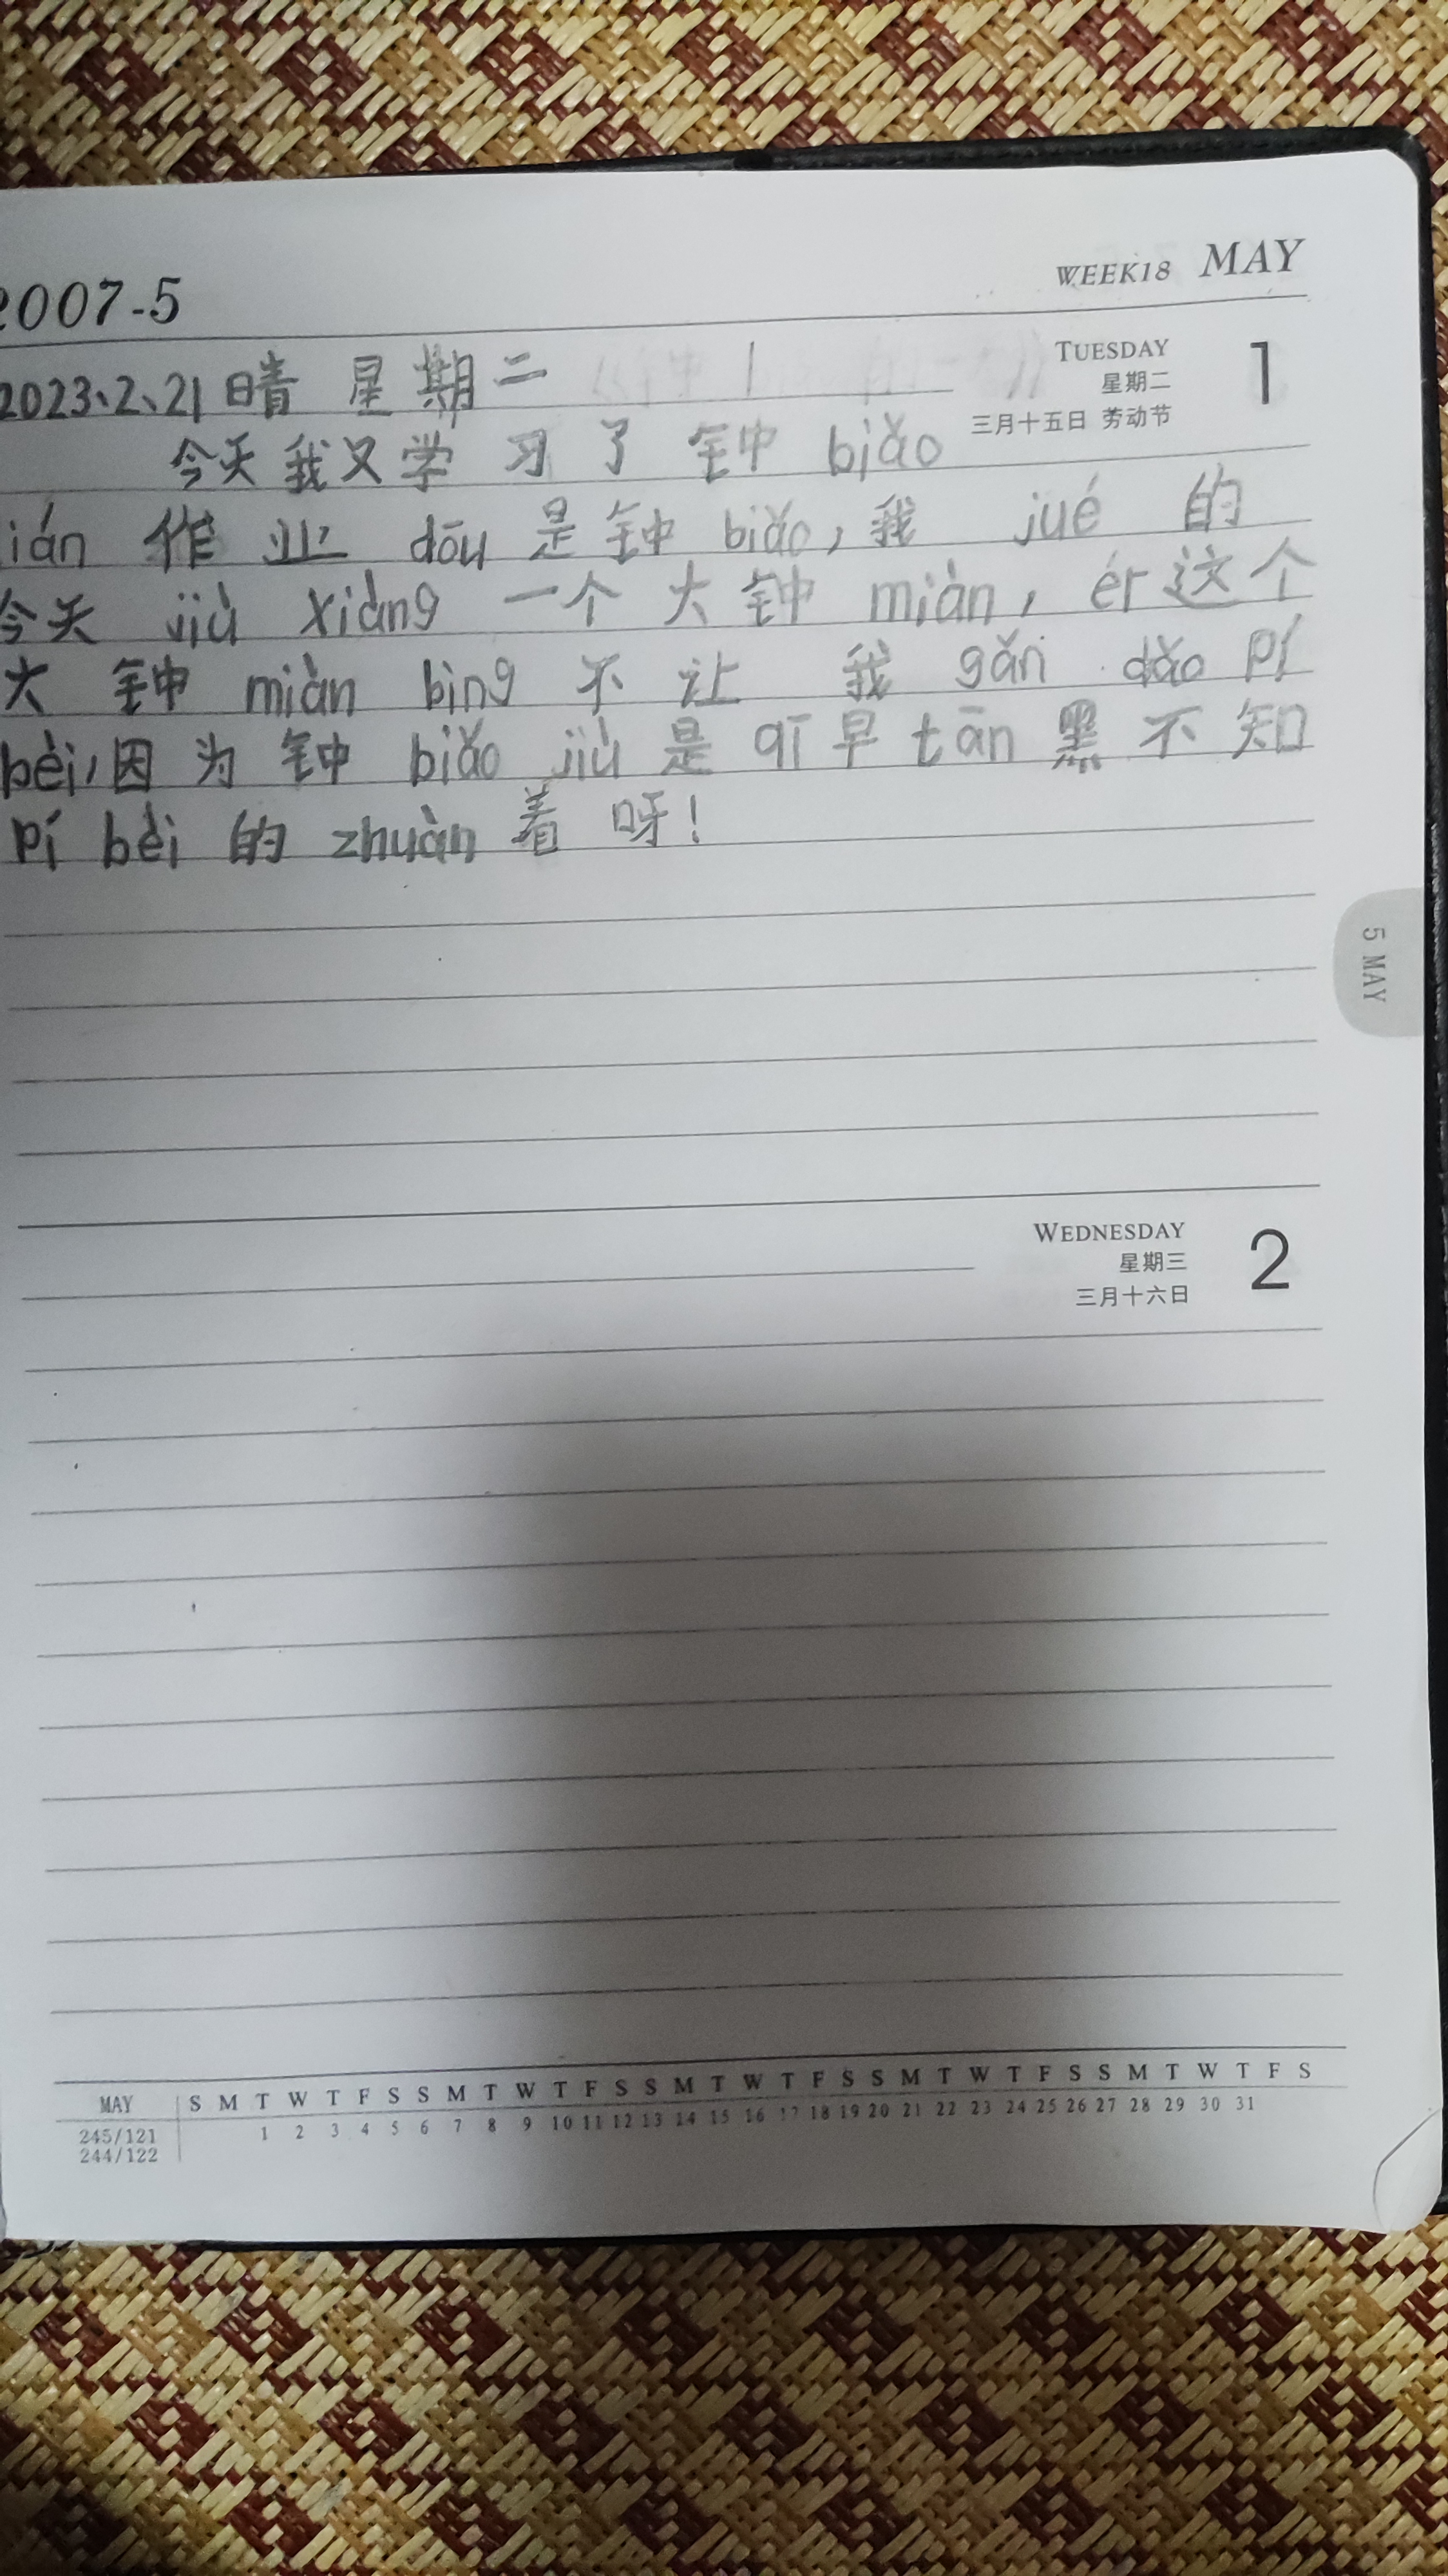 2007-5
WEEK18 MAY
TUESDAY
星期二
三月十五日 劳动节
1
2023、2、21 晴 星期二
今天我又学习了钟 biǎo
ián 作业 dōu 是钟 biǎo,我 jué 的
今天 jiù xiàng 一个大钟 miàn, ér 这个
大钟 miàn bìng 不让我 gǎn dǎo pí
bèi,因为钟 biǎo jiù 是 qī 早 tān 黑不知
pí bèi 的 zhuàn 着呀!
5 MAY
WEDNESDAY
星期三
三月十六日
2
MAY S M T W T F S S M T W T F S S M T W T F S S M T W T F S S M T W T F S
245/121 1 2 3 4 5 6 7 8 9 10 11 12 13 14 15 16 17 18 19 20 21 22 23 24 25 26 27 28 29 30 31
244/122